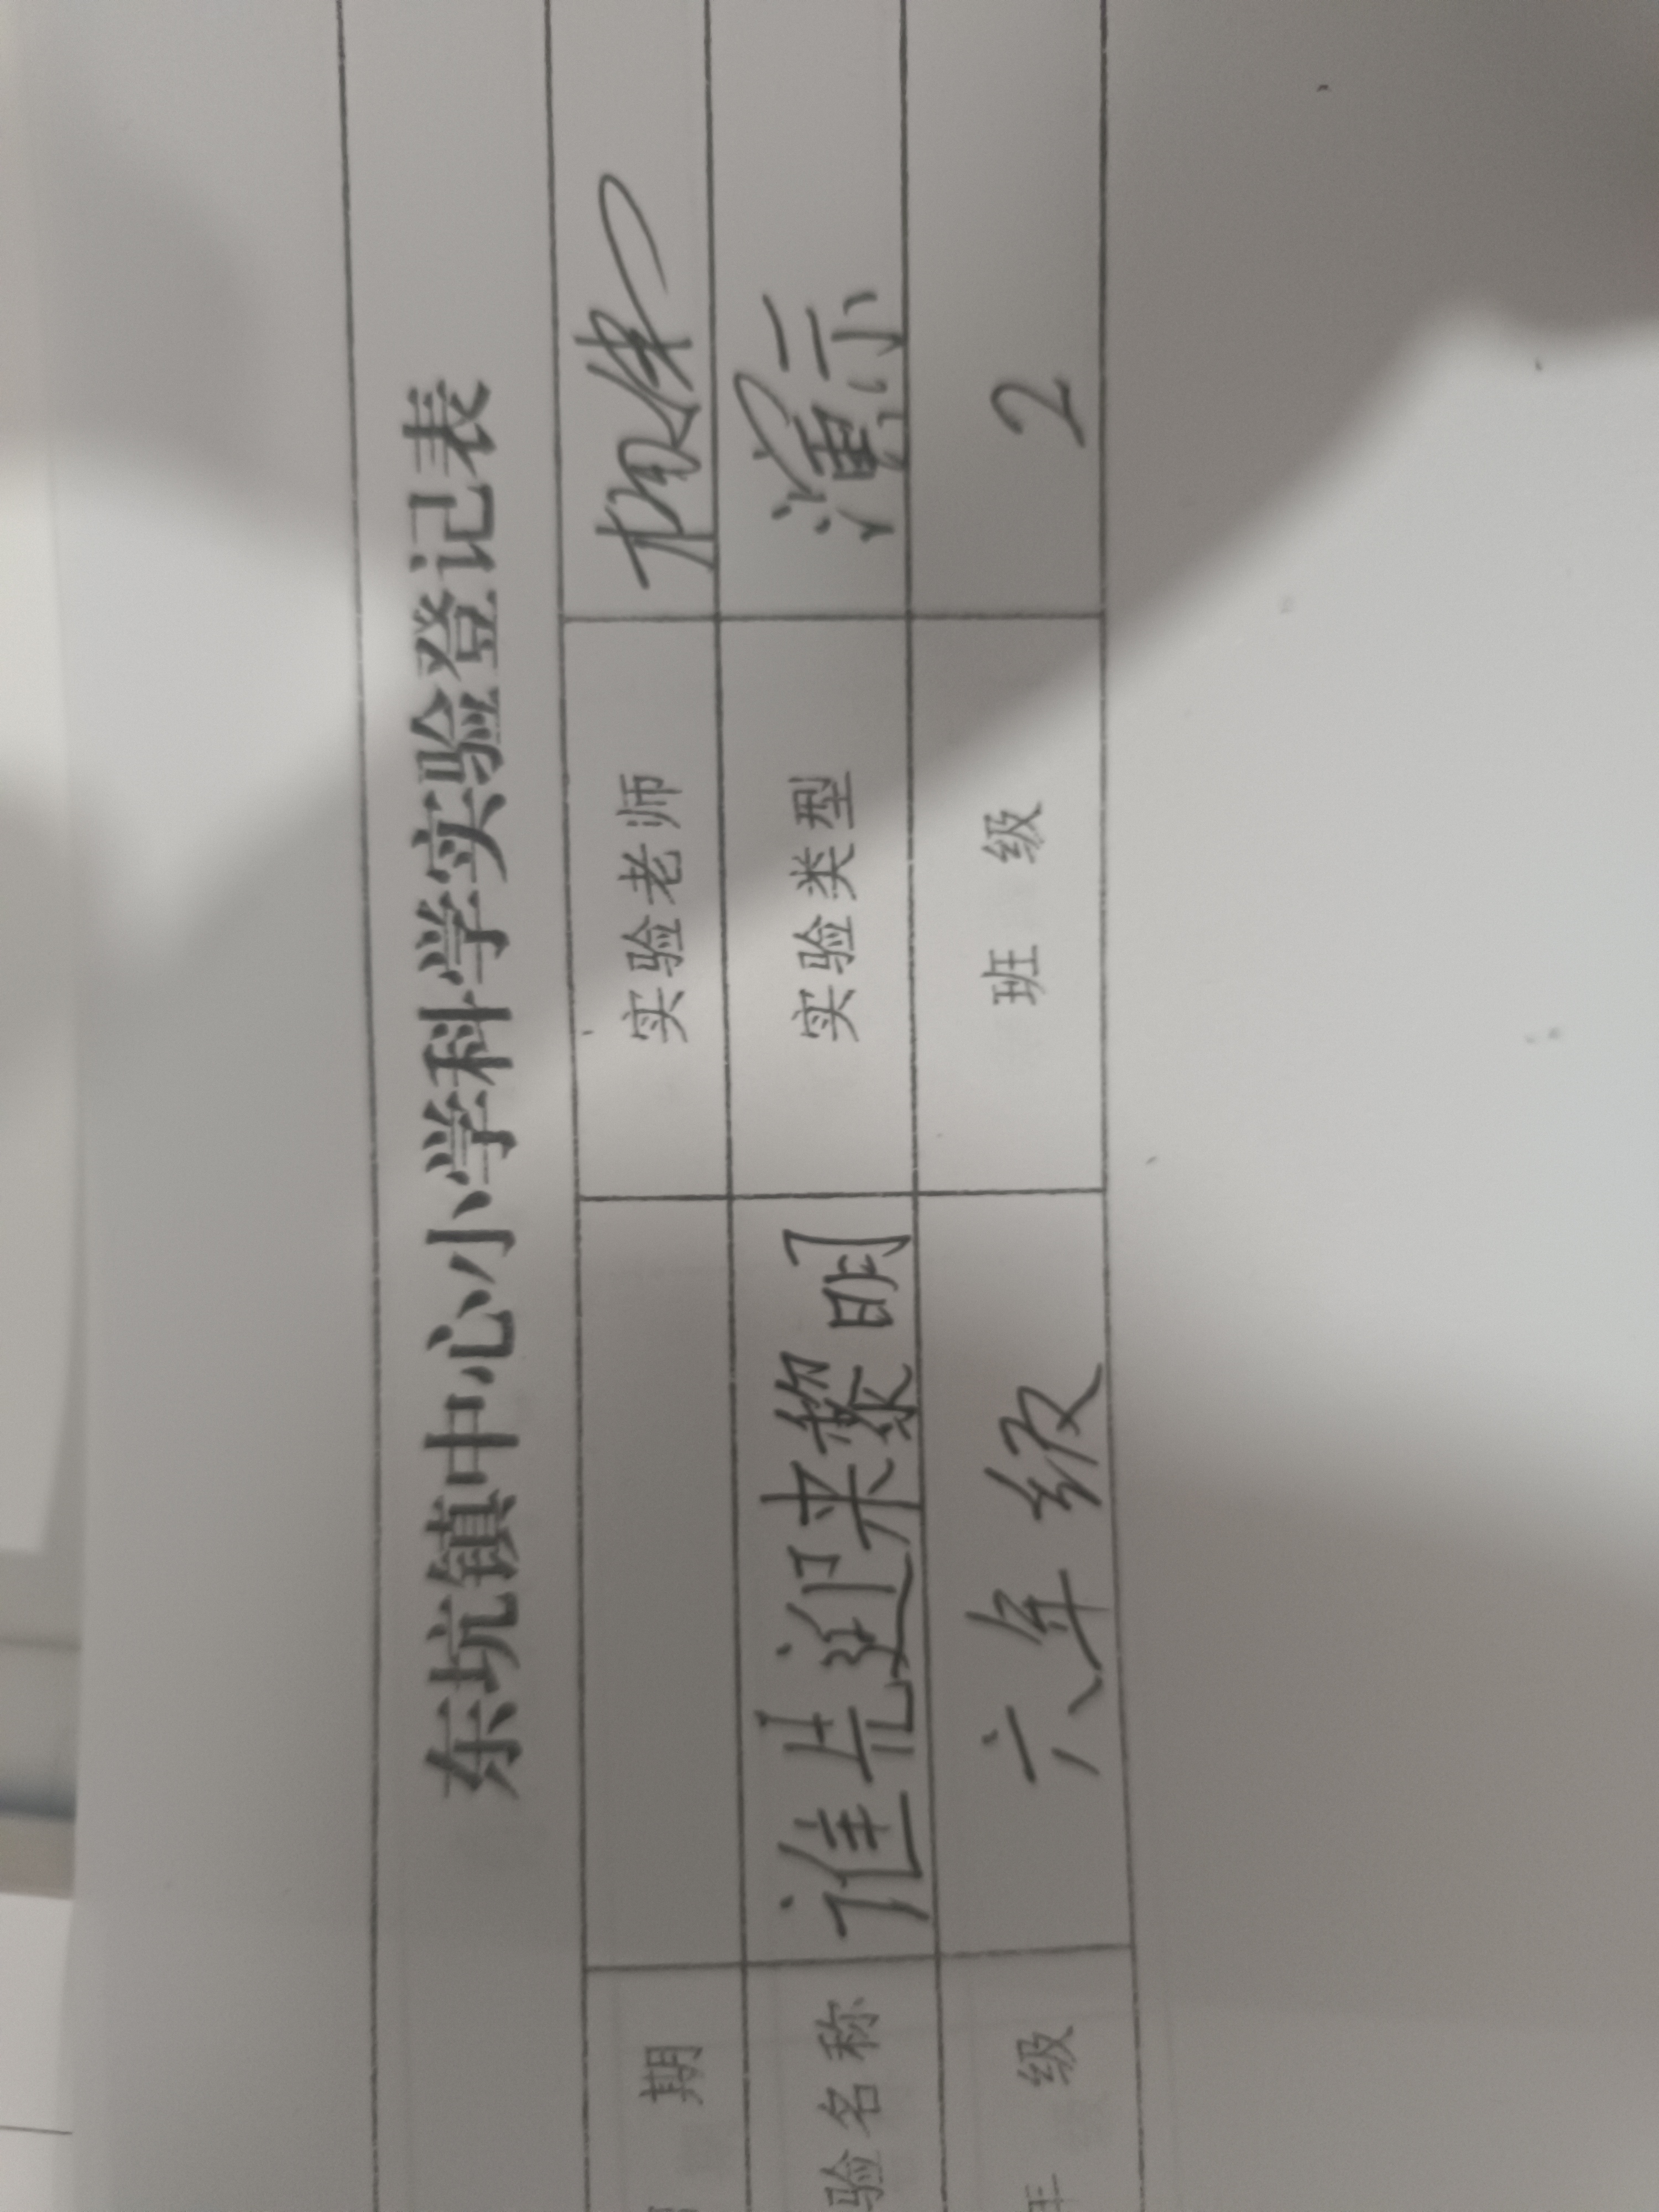 东坑镇中心小学科学实验登记表
期 实验老师
验名称 谁先迎来黎明 实验类型 演示
年 级 六年级 班 级 2